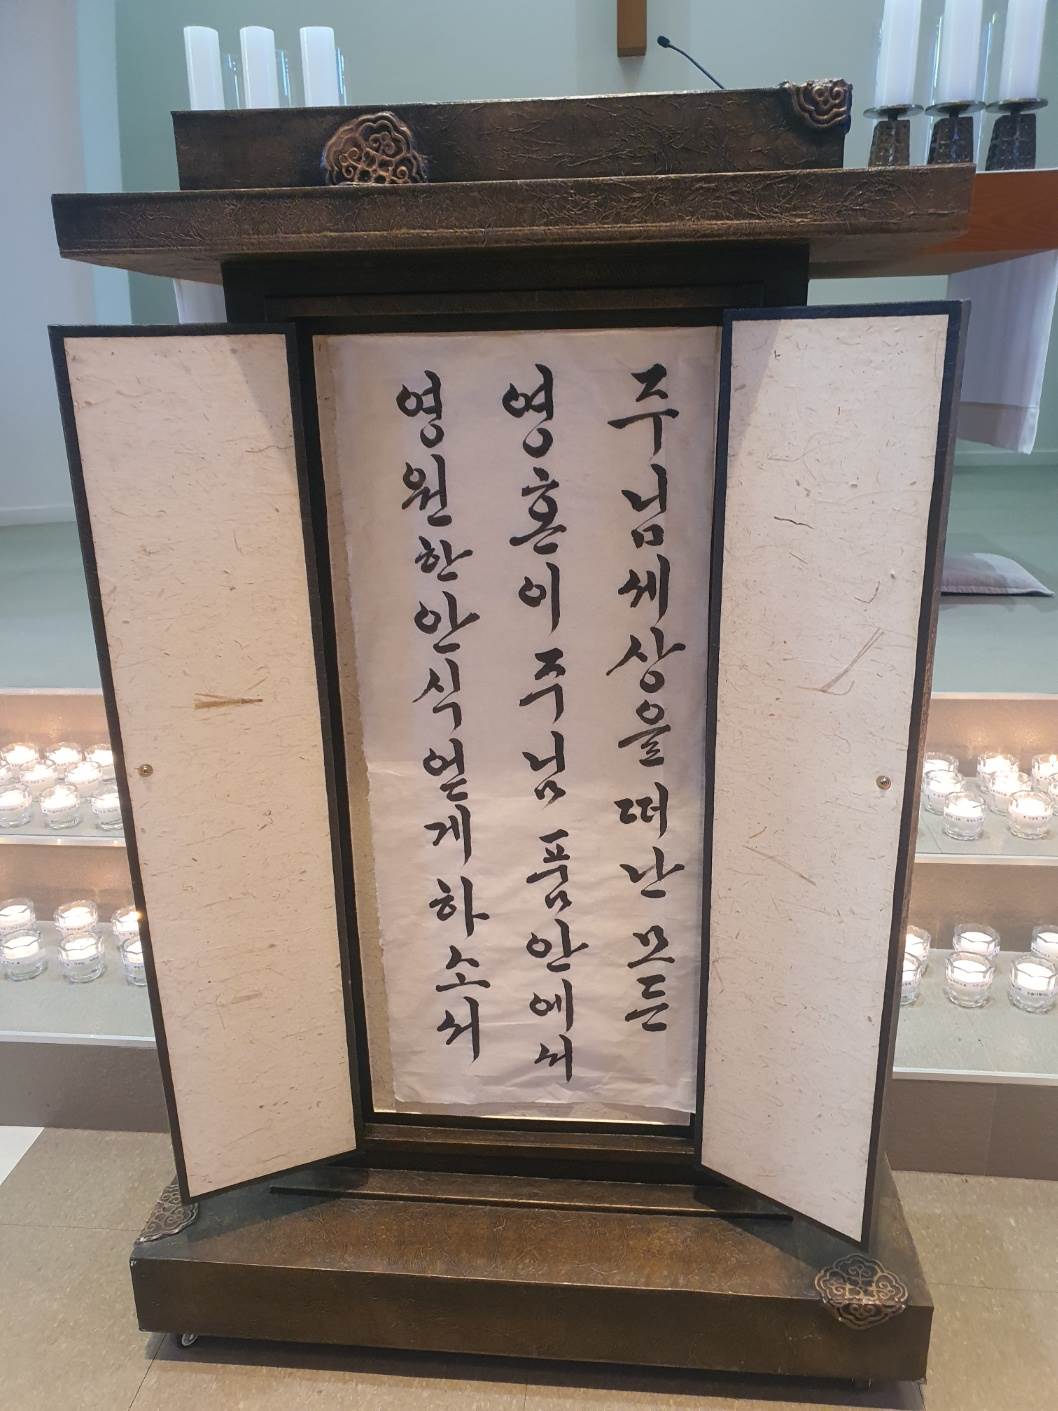 주님 세상을 떠난 모든
영혼이 주님 품안에서
영원한 안식 얻게 하소서